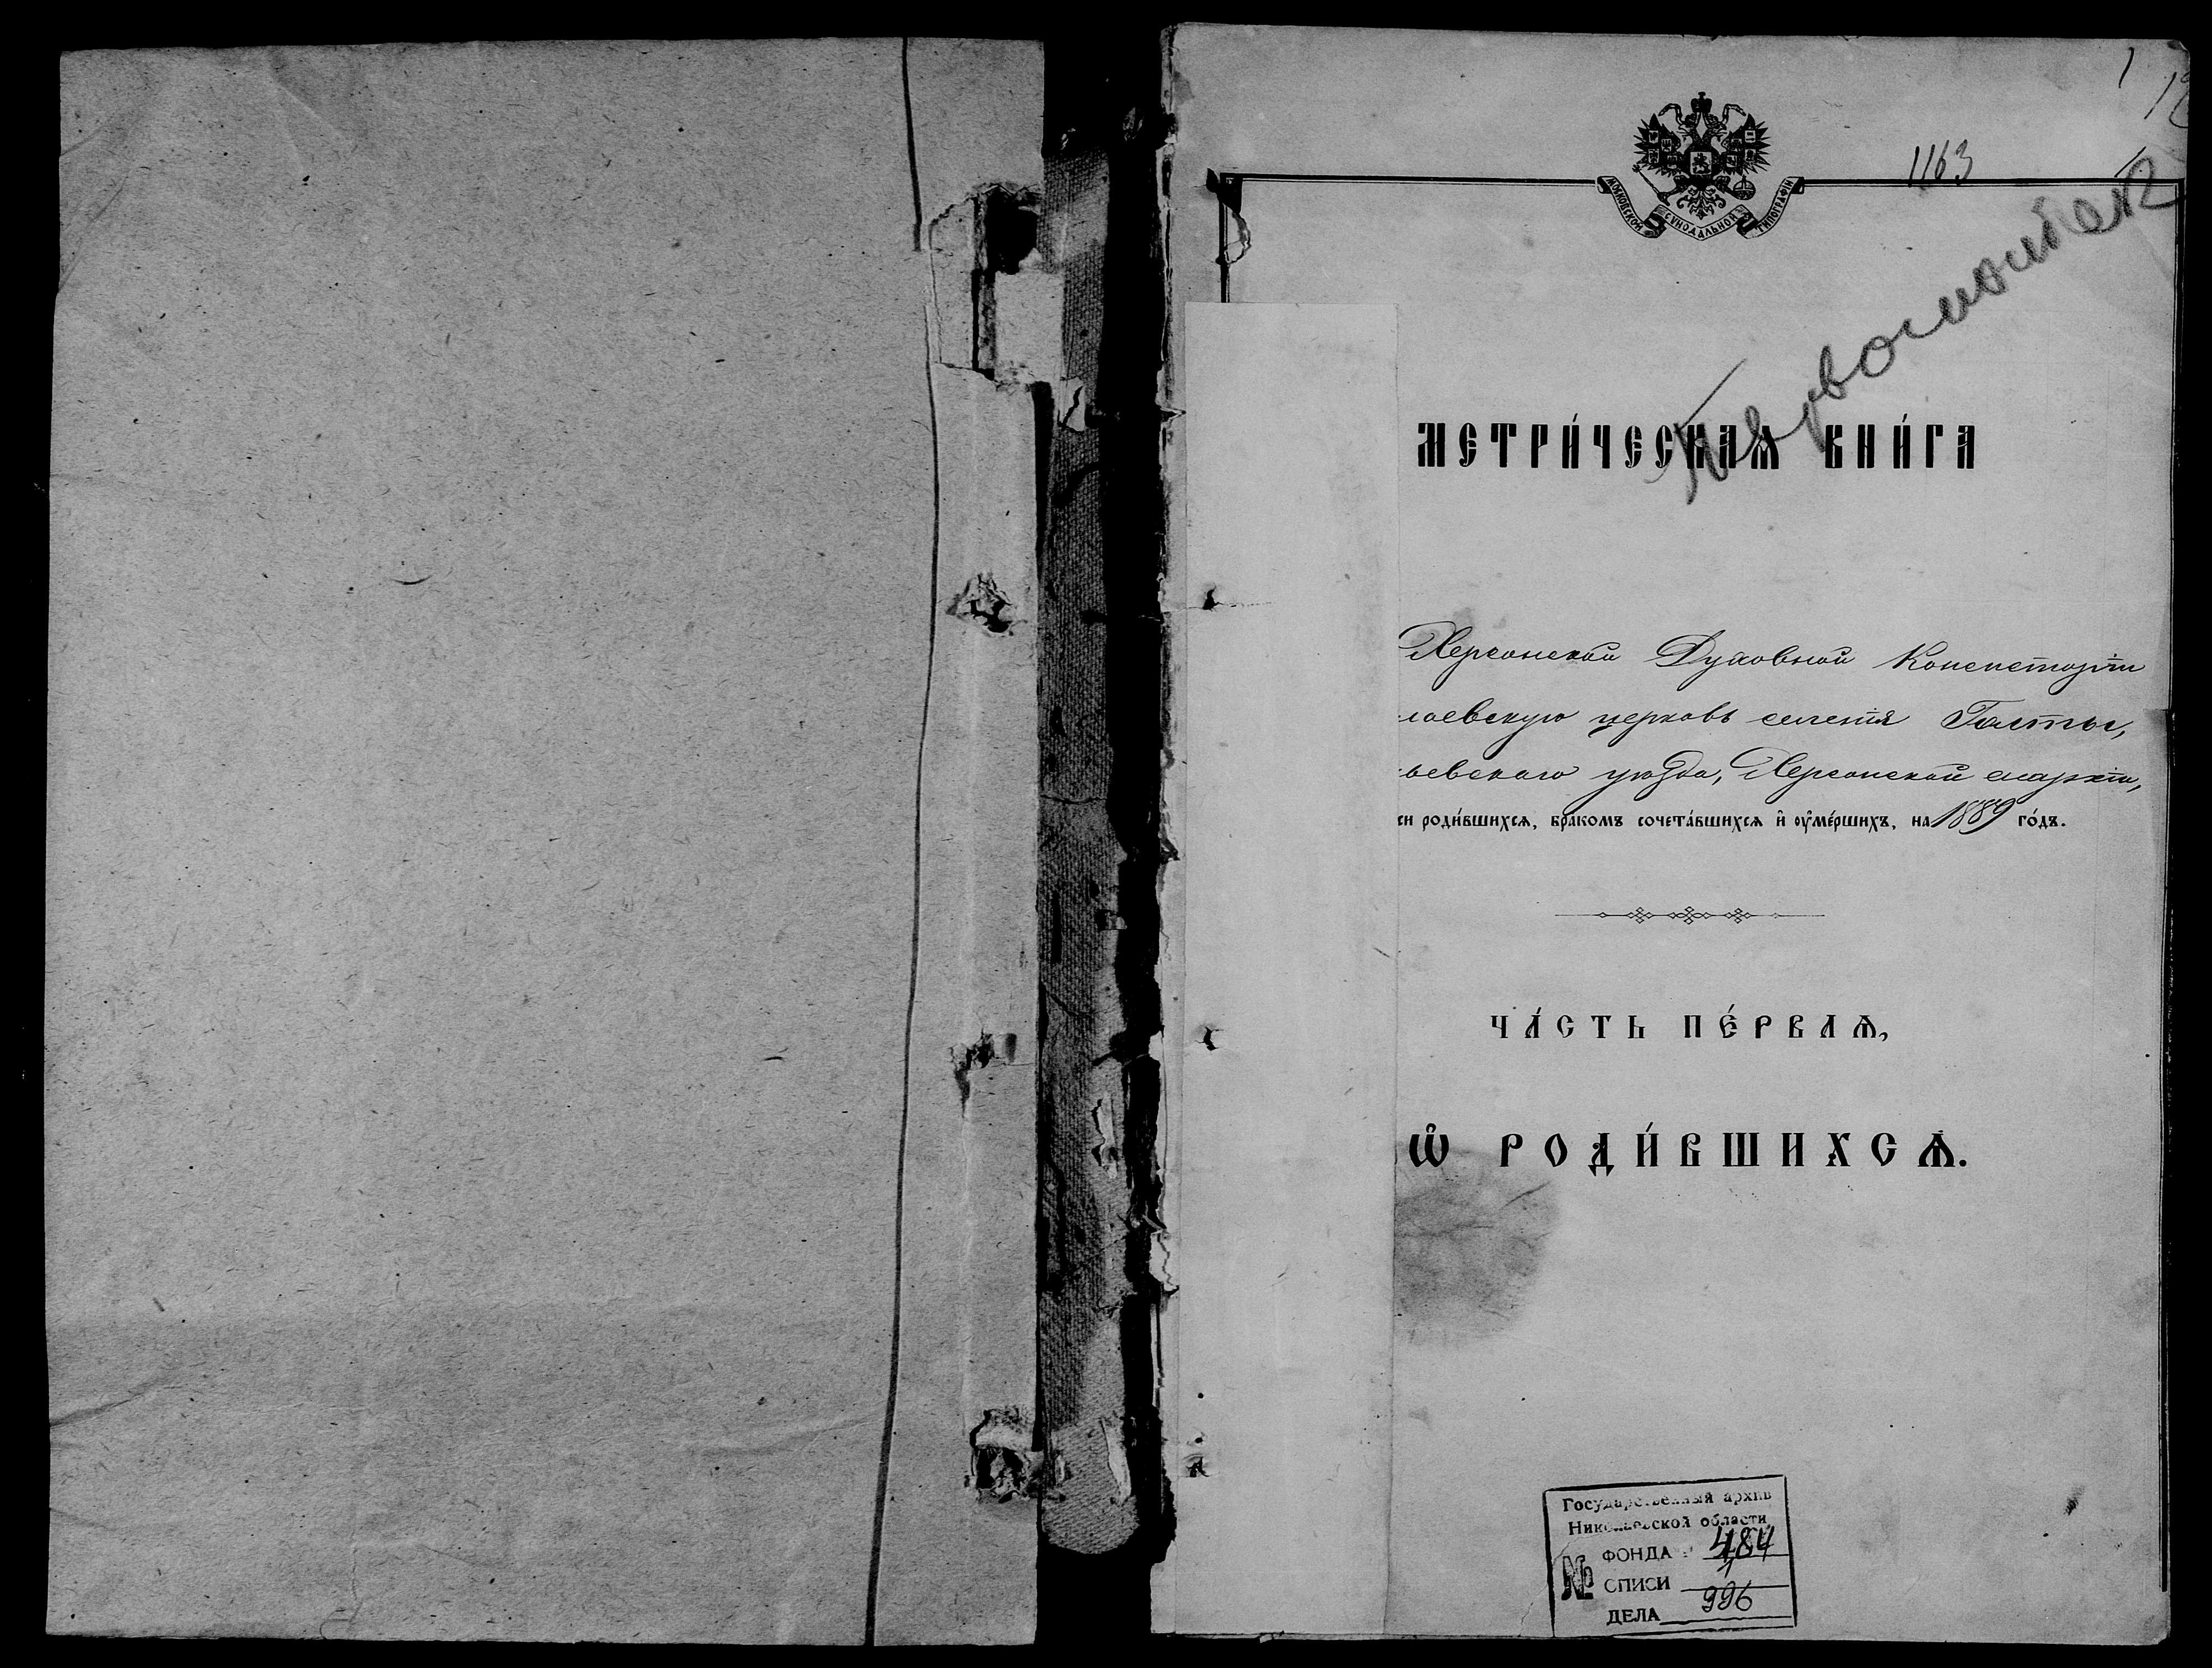 1
12
1163
МОСКОВСКОЙ СѴНОДАЛЬНОЙ ТИПОГРАФІИ
Первомайск
МЕТРИ́ЧЕСКАѦ КНИ́ГА
Херсонской Духовной Консисторіи
лаевскую церковь селенія Голты,
ьевского уѣзда, Херсонской епархіи,
си роди́вшихсѧ, бра́комъ сочета́вшихсѧ и҆ оу҆ме́ршихъ, на 1889 го́дъ.
ЧА́СТЬ ПЕ́РВАѦ,
Ѡ҆ РОДИ́ВШИХСѦ.
Государственный архив
Николаевской области
№ ФОНДА 484
ОПИСИ 1
ДЕЛА 996